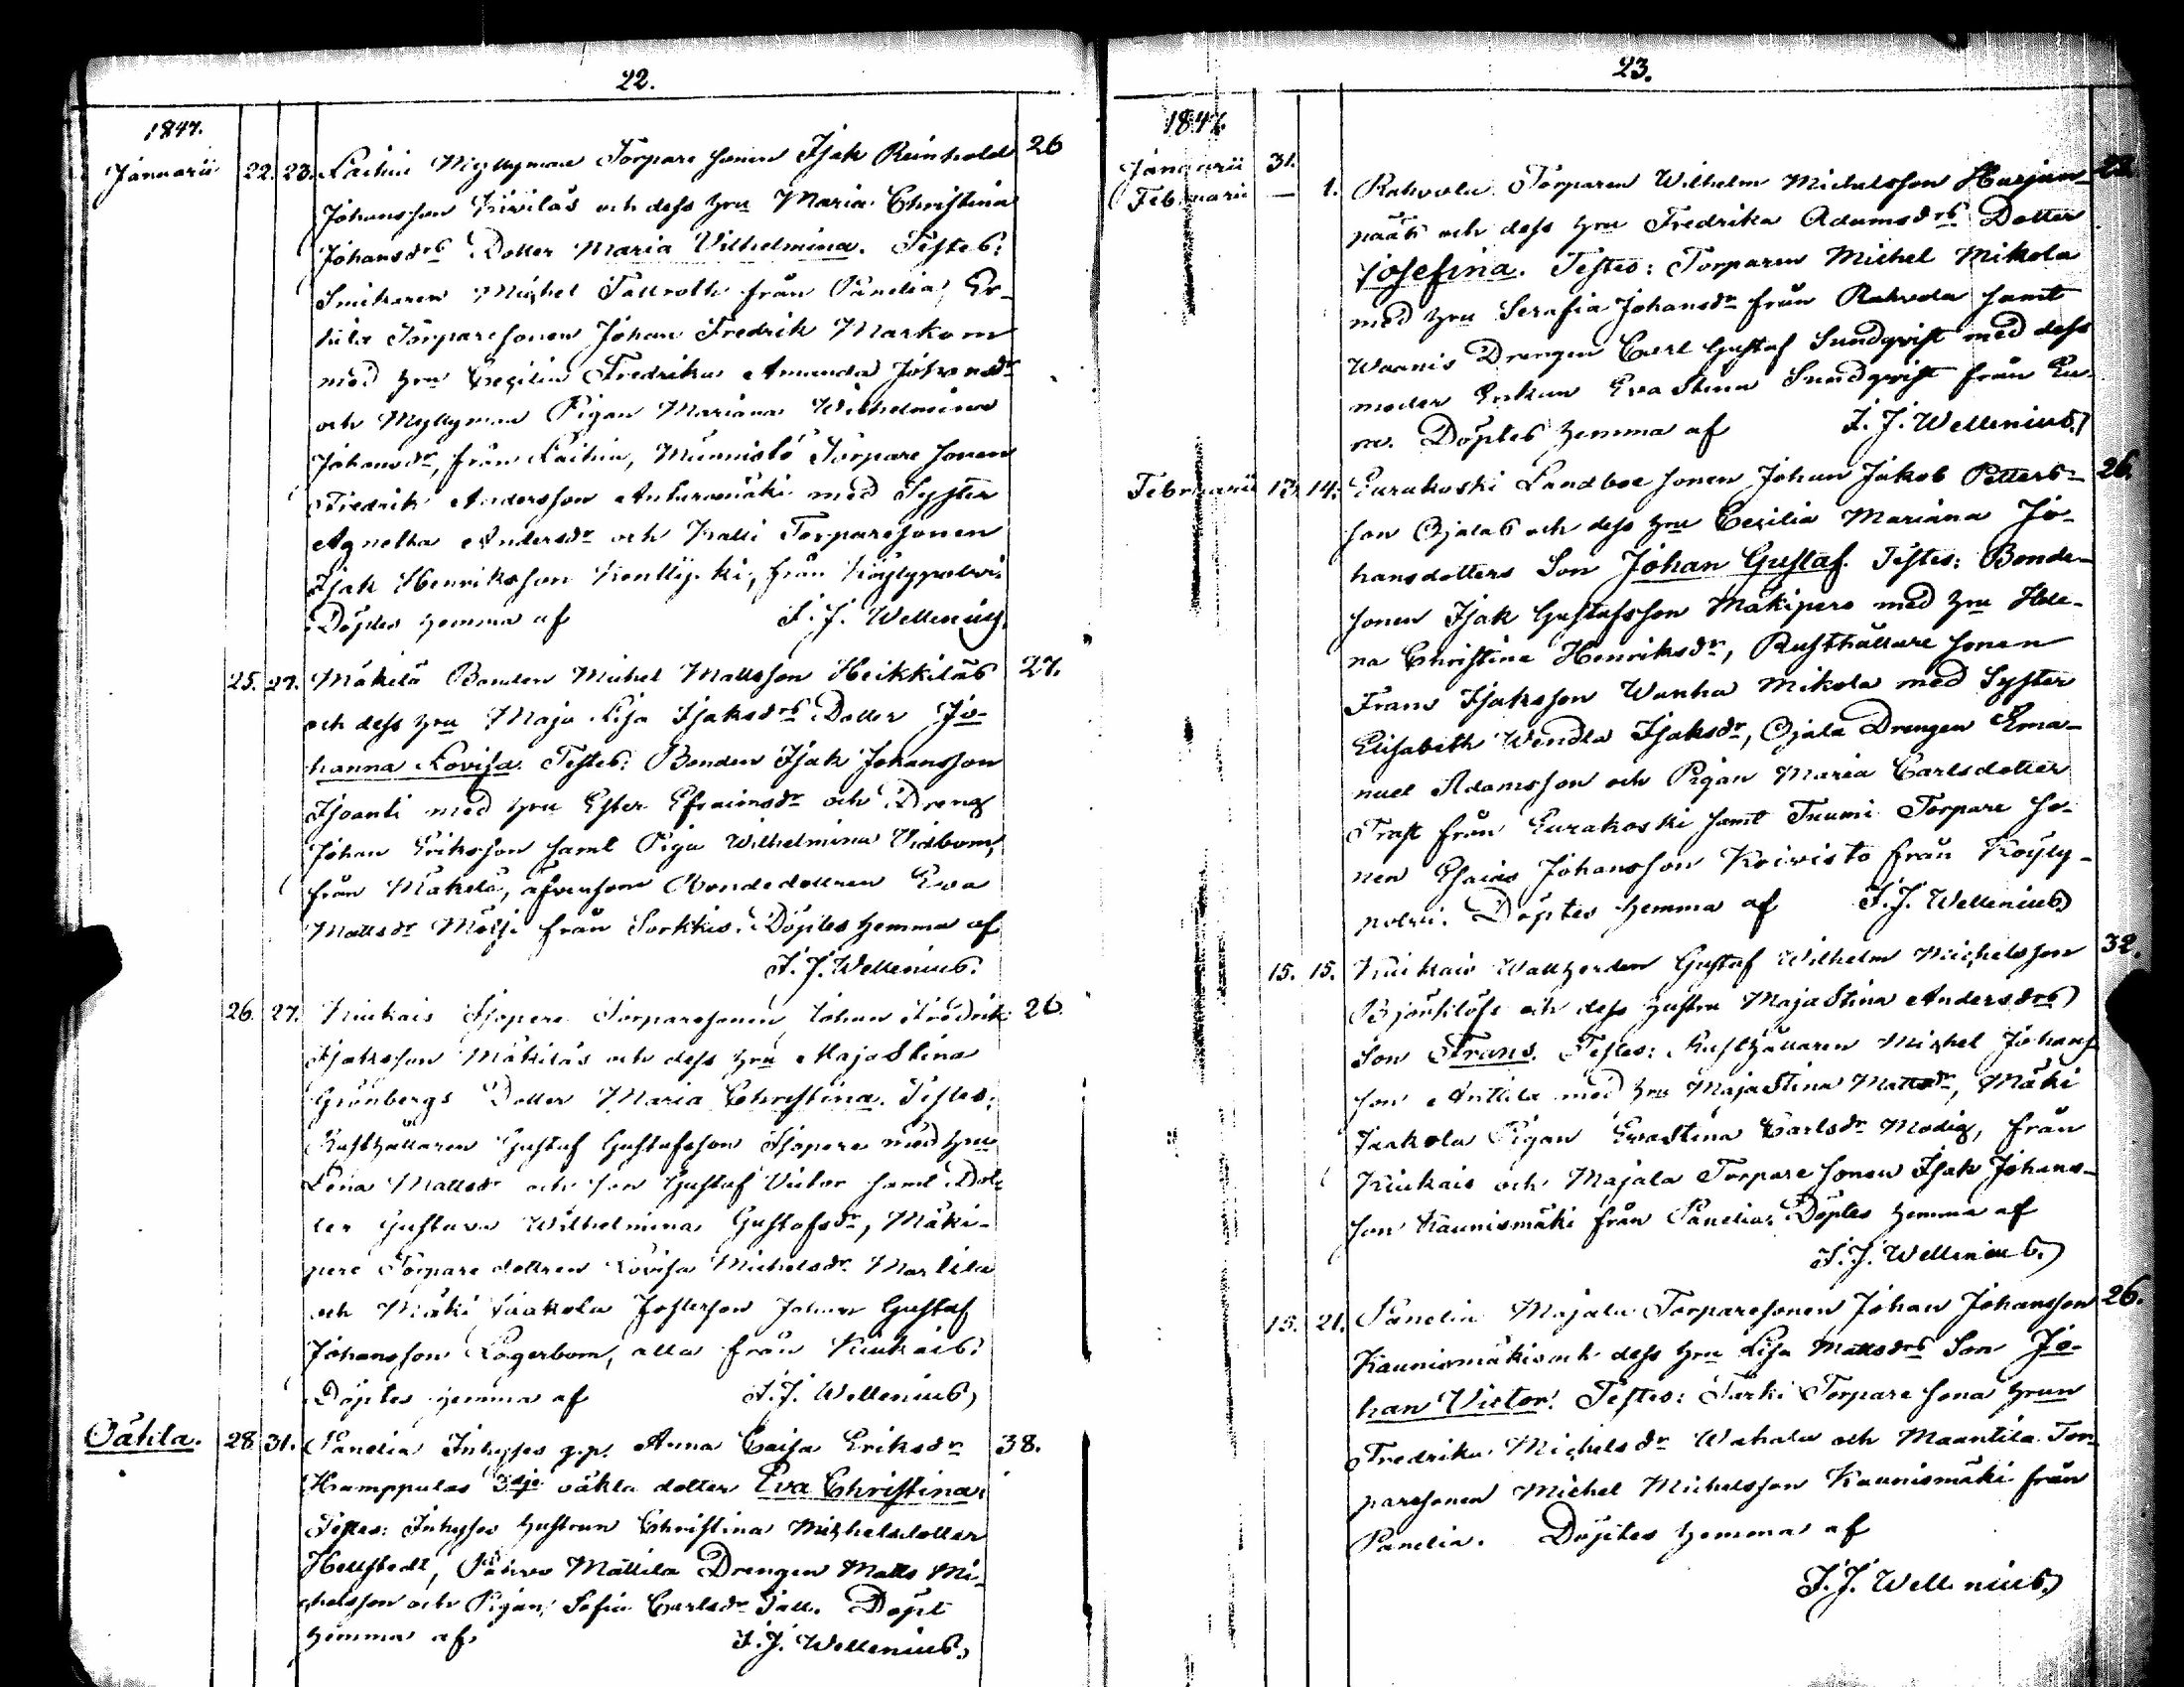 22.
1847.
Januarii 22. 23. Laihia Myllymaa Torpare sonen Isak Reinhold 26
Johansson Kivilás och dess hru Maria Christina
Johansdrs Dotter Maria Vilhelmina. Testes:
Snikaren Michel Tallroth från Panelia, Er-
kila Torparesonen Johan Fredrik Markom
med hru Cecilia Fredrika Amanda Johansdr
och Myllymaa Pigan Mariana Wilhelmina
Johansdr, från Laihia, Männistö Torpare sonen
Fredrik Andersson Anturamäki med Syster
Agnetha Andersdr och Kalli Torparesonen
Isak Henriksson från Köylypolvi.
Döptes hemma af I. J. Wellenius.
25. 27. Mäkelä Bonden Michel Mattsson Heikkiläs 27.
och dess hru Maja Lisa Isaksdrs Dotter Jo-
hanna Lovisa. Testes: Bonden Isak Johansson
Isoanti med hru Ester Efraimsdr och Dreng
Johan Eriksson samt Piga Wilhelmina Vidbom,
från Mäkelä, äfvensom Bondedottren Eva
Mattsdr från Sorkkis. Döptes hemma af
I. J. Wellenius.
26. 27. Kiukais Isopere Torparesonen Johan Fredrik 26.
Isaksson Mäkiläs och dess hru Maja Stina
Grönbergs Dotter Maria Christina. Testes:
Rusthållaren Gustaf Gustafsson Isopere med hru
Lena Mattsdr och son Gustaf Victor samt Dot-
ter Gustava Wilhelmina Gustafsdr, Mäki-
pere Torpare dottren Lovisa Michelsdr Martila
och Mäki Jaakola Fosterson Johan Gustaf
Johansson Lagerbom, alla från Kiukais.
Döptes hemma af I. J. Wellenius.
Oäkta. 28 31. Panelia Inhyses q.p. Anna Caisa Eriksdr 38.
Humppulas 3dje oäkta dotter Eva Christina.
Testes: Inhyses hustrun Christina Michelsdotter
Hellstedt, Mattila Drengen Matts Mi-
chelsson och Pigan Sofia Carlsdr Tall. Döpt
hemma af I. J. Wellenius.
23.
1847.
Januarii 31.
Februarii — 1. Rahvola Torparen Wilhelm Michelsson Harjun- 22
pääs och dess hru Fredrika Adamsdrs Dotter
Josefina. Testes: Torparen Michel Mikola
med hru Serafia Johansdr från Rahvola samt
Waanis Drengen Carl Gustaf Sundqvist med dess
moder Enkan Eva Stina Sundqvist från Eu-
ra. Döptes hemma af I. J. Wellenius.
Februarii 13. 14. Eurakoski Landboe sonen Johan Jakob Petters- 26.
son Ojalas och dess hru Cecilia Mariana Jo-
hansdotters Son Johan Gustaf. Testes: Bonde-
sonen Isak Gustafsson Mäkipere med hru Hele-
na Christina Henriksdr, Rusthållare sonen
Frans Isaksson Wanha Mikola med Syster
Elisabeth Wendla Isaksdr, Ojala Drengen Ema-
nuel Adamsson och Pigan Maria Carlsdotter
Trast från Eurakoski samt Tuumi Torpare so-
nen Esaias Johansson Koivisto från Köyly-
polvi. Döptes hemma af I. J. Wellenius
15. 15. Kiukais Wallherden Gustaf Wilhelm Michelsson 32.
Björklöfs och dess hustru Maja Stina Andersdrs
Son Frans. Testes: Rusthållaren Michel Johans-
son Anttila med hru Maja Stina Mattsdr, Mäki
Jaakola Pigan Eva Stina Carlsdr Modig, från
Kiukais och Majala Torpare sonen Isak Johans-
son Kaunismäki från Panelia. Döptes hemma af
I. J. Wellenius.
15. 21. Panelia Majala Torparesonen Johan Johansson 26.
Kaunismäkis och dess hru Lisa Mattsdrs Son Jo-
han Victor. Testes: Turki Torpare sona hrun
Fredrika Michelsdr Wahala och Maantila Tor-
paresonen Michel Michelsson Kaunismäki från
Panelia. Döptes hemma af
I. J. Wellenius.